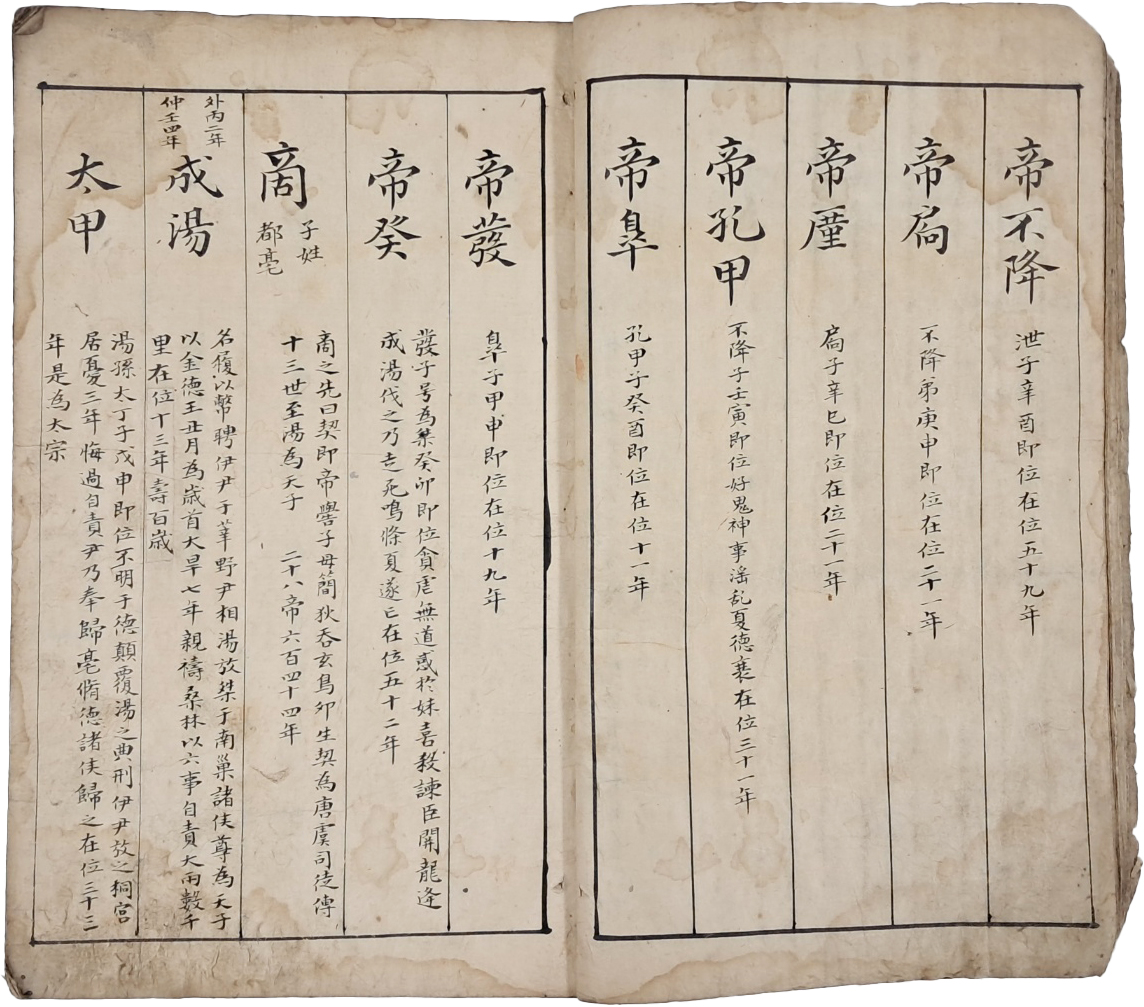 帝不降
泄子辛酉即位在位五十九年
帝扃
不降弟庚申即位在位二十一年
帝厪
扃子辛巳即位在位二十一年
帝孔甲
不降子壬寅即位好鬼神事滛乱夏德衰在位三十一年
帝皐
孔甲子癸酉即位在位十一年
帝發
皐子甲申即位在位十九年
帝癸
發子号為桀癸卯即位貪虐無道惑於妹喜殺諫臣関龍逄
成湯伐之乃走死鳴條夏遂亡在位五十二年
商
子姓
都亳
商之先曰契即帝嚳子母簡狄吞玄鳥卵生契為唐虞司徒傳
十三世至湯為天子 二十八帝六百四十四年
外丙二年
仲壬四年
成湯
名履以幣聘伊尹于莘野尹相湯放桀于南巢諸侯尊為天子
以金德王丑月為歲首大旱七年親禱桑林以六事自責大雨數千
里在位十三年壽百歲
太甲
湯孫太丁子戊申即位不明于德顛覆湯之典刑伊尹放之桐宮
居憂三年悔過自責尹乃奉歸亳脩德諸侯歸之在位三十三
年是為太宗